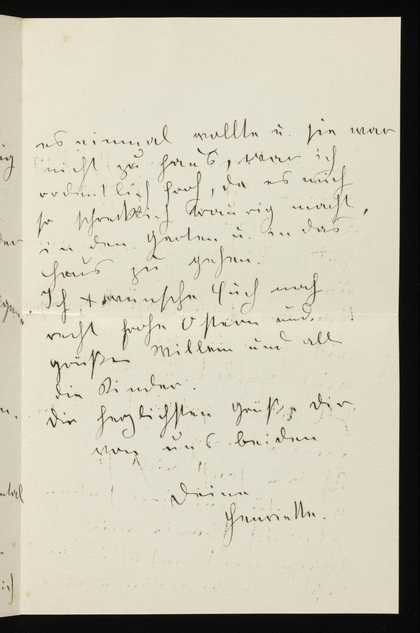 es einmal wollte u. sie war
nicht zu haus, war ich
ordentlich froh, da es mich
so schrecklich traurig macht,
in den Garten u. in das
Haus zu gehen.
Ich wünsche Euch noch
recht frohe Ostern und
grüße Willem und all
die Kinder.
Die herzlichsten Grüße Dir
von uns beiden
Deine
Henriette.